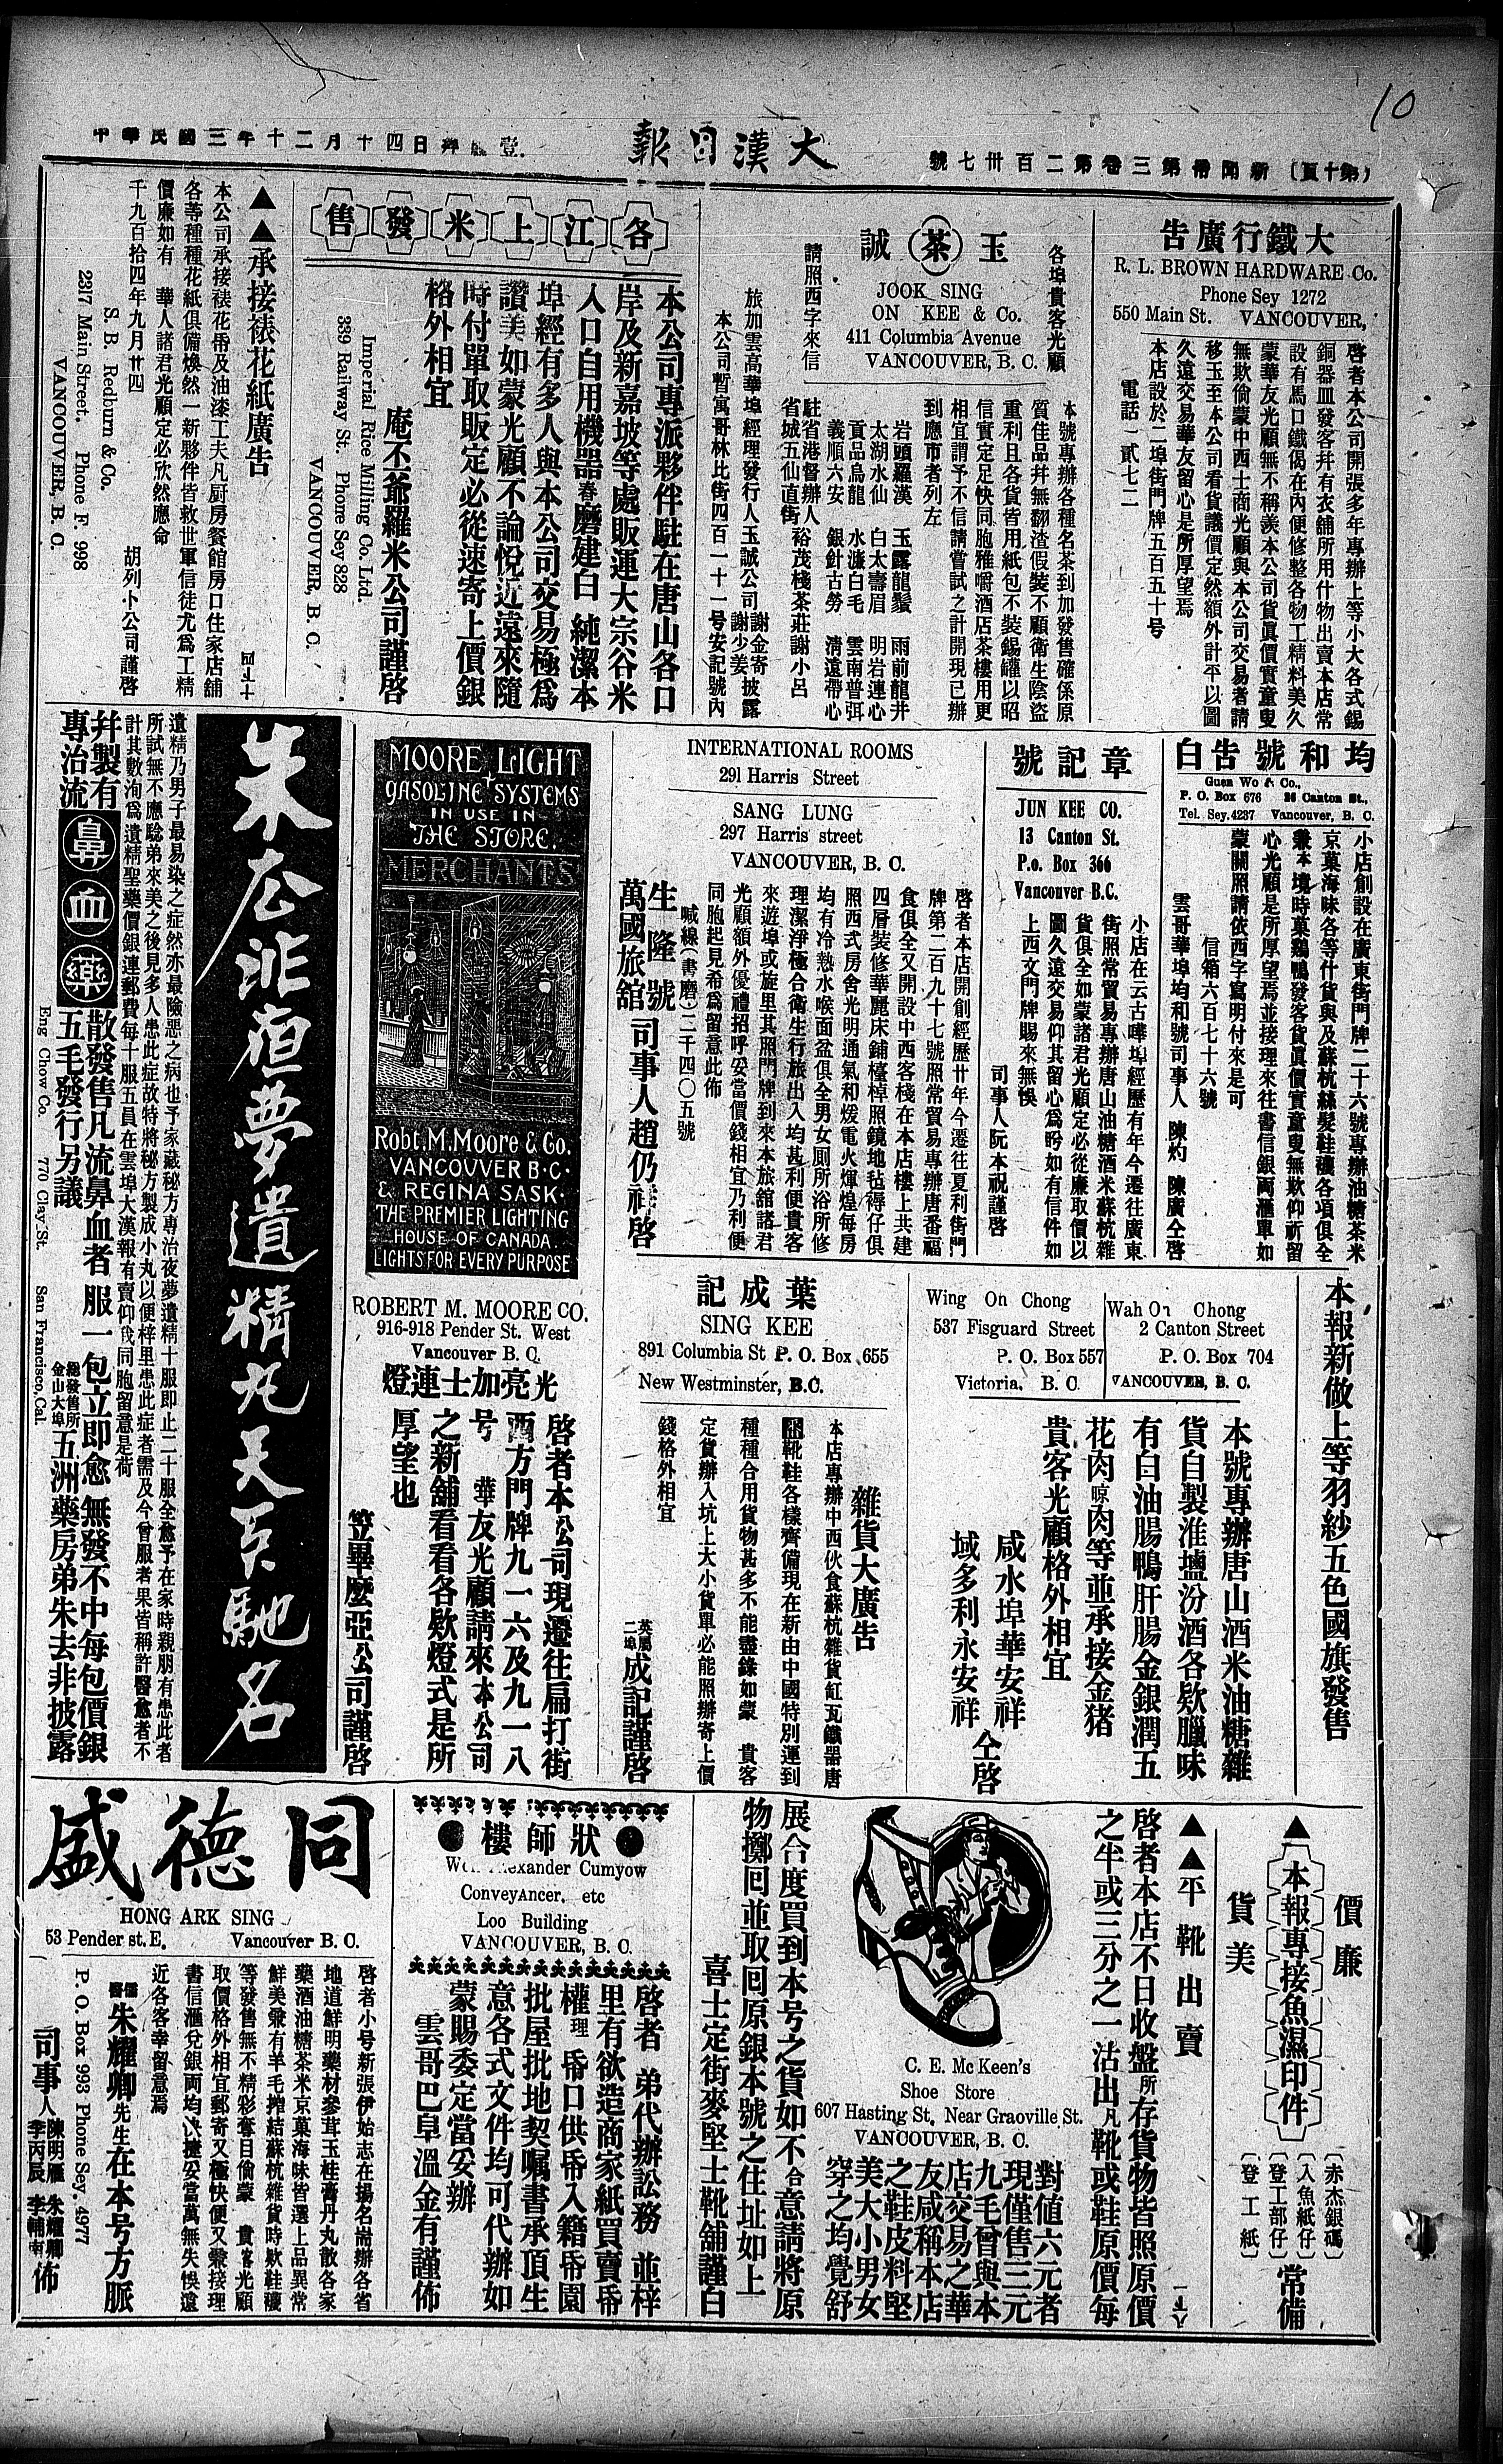 10
大漢日報
(第十頁) 新聞帋第三卷第二百卅七號
中華民國三年十二月十四日
大鐵行廣告
R. L. BROWN HARDWARE Co.
Phone Sey 1272
550 Main St. VANCOUVER,
啓者本公司開張多年專辦上等小大各式錫
銅器皿發客幷有衣舖所用什物出賣本店常
設有馬口鐵偈在內便修整各物工精料美久
蒙華友光顧無不稱羨本公司貨眞價實童叟
無欺倘蒙中西士商光顧與本公司交易者請
移玉至本公司看貨議價定然額外計平以圖
久遠交易華友留心是所厚望焉
本店設於二埠街門牌五百五十号
電話 貳七二
各埠貴客光顧
玉茶誠
JOOK SING
ON KEE & Co.
411 Columbia Avenue
VANCOUVER, B. C.
請照西字來信
本號專辦各種名茶到加發售確係原
質佳品幷無翻渣假裝不顧衛生陰盜
重利且各貨皆用紙包不裝錫罐以昭
信實定足快同胞雅嚼酒店茶樓用更
相宜謂予不信請嘗試之計開現已辦
到應市者列左
岩頭羅漢 玉露龍鬚 雨前龍井
太湖水仙 白太壽眉 明岩連心
貢品烏龍 水濂白毛 雲南普弭
義順六安 銀針古勞 淸遠帶心
駐省港督辦人
省城五仙直街 裕茂棧茶莊謝小呂
旅加雲高華埠經理發行人玉誠公司 謝金寄 謝少姜 披露
本公司暫寓哥林比街四百一十一号安記號內
各江上米發售
本公司專派夥伴駐在唐山各口
岸及新嘉坡等處販運大宗谷米
入口自用機器舂磨建白 純潔本
埠經有多人與本公司交易極爲
讚美如蒙光顧不論悅近遠來隨
時付單取販定必從速寄上價銀
格外相宜
庵丕爺羅米公司謹啓
Imperial Rice Milling Co. Ltd.
339 Railway St. Phone Sey 828
VANCOUVER, B. C.
▲▲承接裱花紙廣告
本公司承接裱花帋及油漆工夫凡厨房餐館房口住家店舖
各等種種花紙俱備煥然一新夥伴皆救世軍信徒尤爲工精
價廉如有 華人諸君光顧定必欣然應命
千九百拾四年九月廿四 胡列卜公司謹啓
S. B. Redburn & Co.
2317 Main Street. Phone F. 998
VANCOUVER, B. C.
均和號告白
Guen Wo & Co.,
P. O. Box 676 26 Canton St.,
Tel. Sey. 4237 Vancouver, B. C.
小店創設在廣東街門牌二十六號專辦油糖茶米
京菓海味各等什貨與及蘇杭絲髮鞋襪各項俱全
兼本境時菓鷄鴨發客貨眞價實童叟無欺仰祈留
心光顧是所厚望焉並接理來往書信銀両滙單如
蒙關照請依西字寫明付來是可
信箱六百七十六號
雲哥華埠均和號司事人 陳灼 陳廣仝啓
章記號
JUN KEE CO.
13 Canton St.
P.o. Box 366
Vancouver B.C.
小店在云古嘩埠經歷有年今遷往廣東
街照常貿易專辦唐山油糖酒米蘇杭雜
貨俱全如蒙諸君光顧定必從廉取價以
圖久遠交易仰其留心爲盼如有信件如
上西文門牌賜來無悞
司事人阮本祝謹啓
INTERNATIONAL ROOMS
291 Harris Street
SANG LUNG
297 Harris street
VANCOUVER, B. C.
啓者本店開創經歷廿年今遷往夏利街門
牌第二百九十七號照常貿易專辦唐番福
食俱全又開設中西客棧在本店樓上共建
四層裝修華麗床鋪檯椅照鏡地毡得仔俱
照西式房舍光明通氣和煖電火煇煌每房
均有冷熱水喉面盆俱全男女厠所浴所修
理潔淨極合衛生行旅出入均甚利便貴客
來遊埠或旋里其照門牌到來本旅舘諸君
光顧額外優禮招呼妥當價錢相宜乃利便
同胞起見希爲留意此佈
喊線(書磨)二千四〇五號
生隆號
萬國旅舘 司事人趙仍祥啓
MOORE LIGHT
GASOLINE SYSTEMS
IN USE IN
THE STORE.
MERCHANTS
Robt. M. Moore & Co.
VANCOUVER B·C·
& REGINA SASK·
THE PREMIER LIGHTING
HOUSE OF CANADA
LIGHTS FOR EVERY PURPOSE
ROBERT M. MOORE CO.
916-918 Pender St. West
Vancouver B. C.
光亮加士連燈
啓者本公司現遷往扁打街
西方門牌九一六及九一八
号 華友光顧請來本公司
之新舖看看各欵燈式是所
厚望也
笠畢麼亞公司謹啓
朱広非夜夢遺精丸天下馳名
遺精乃男子最易染之症然亦最險惡之病也予家藏秘方專治夜夢遺精十服即止二十服全愈予在家時親朋有患此者
所試無不應驗弟來美之後見多人患此症故特將秘方製成小丸以便梓里患此症者需及今曾服者果皆稱許醫愈者不
計其數洵爲遺精聖藥價銀連郵費每十服五員在雲埠大漢報有賣仰我同胞留意是荷
幷製有專治流鼻血藥散發售凡流鼻血者 服一包立即愈 無發不中每包價銀
五毛發行另議 總發售所金山大埠 五洲藥房弟朱去非披露
Eng Chow Co. 770 Clay-St. San Francisco, Cal.
本報新做上等羽紗五色國旗發售
Wah On Chong
2 Canton Street
P. O. Box 704
VANCOUVER, B. C.
Wing On Chong
537 Fisguard Street
P. O. Box 557
Victoria. B. C
本號專辦唐山酒米油糖雜
貨自製淮塩汾酒各欵臘味
有白油腸鴨肝腸金銀潤五
花肉晾肉等並承接金猪
貴客光顧格外相宜
咸水埠華安祥
域多利永安祥 仝啓
葉成記
SING KEE
891 Columbia St P. O. Box 655
New Westminster, B.C.
雜貨大廣告
本店專辦中西伙食蘇杭雜貨缸瓦鐵器唐
靴鞋各樣齊備現在新由中國特別運到
種種合用貨物甚多不能盡錄如蒙 貴客
定貨辦入坑上大小貨單必能照辦寄上價
錢格外相宜
英屬二埠 成記謹啓
價廉
▲本報專接魚濕印件
貨美
(赤杰銀碼)
(入魚紙仔)
(登工部仔)
(登工紙)
常備
▲▲平靴出賣
啓者本店不日收盤所存貨物皆照原價
之半或三分之一沽出凡靴或鞋原價每
對值六元者
現僅售三元
九毛曾與本
店交易之華
友咸稱本店
之鞋皮料堅
美大小男女
穿之均覺舒
C. E. Mc Keen's
Shoe Store
607 Hasting St. Near Graoville St.
VANCOUVER, B. C.
展合度買到本号之貨如不合意請將原
物擲囘並取回原銀本號之住址如上
喜士定街麥堅士靴舖謹白
狀師樓
Alexander Cumyow
ConveyAncer. etc
Loo Building
VANCOUVER, B. C.
啓者 弟代辦訟務 並梓
里有欲造商家紙買賣帋
權理帋口供帋入籍帋園
批屋批地契嘱書承頂生
意各式文件均可代辦如
蒙賜委定當妥辦
雲哥巴阜溫金有謹佈
同德盛
HONG ARK SING
53 Pender st. E. Vancouver B. C.
啓者小号新張伊始志在揚名崗辦各省
地道鮮明藥材參茸玉桂膏丹丸散各家
藥酒油糖茶米京菓海味皆選上品異常
鮮美兼有羊毛搾結蘇杭雜貨時欵鞋襪
等發售無不精彩奪目倘蒙 貴客光顧
取價格外相宜郵寄又極快便又兼接理
書信滙兌銀両均快捷妥當萬無失悞遠
近各客幸留意焉
儒醫朱耀卿先生在本号方脈
P. O. Box 993 Phone Sey. 4977
司事人 陳明雁 朱耀卿 李丙辰 李輔南 佈